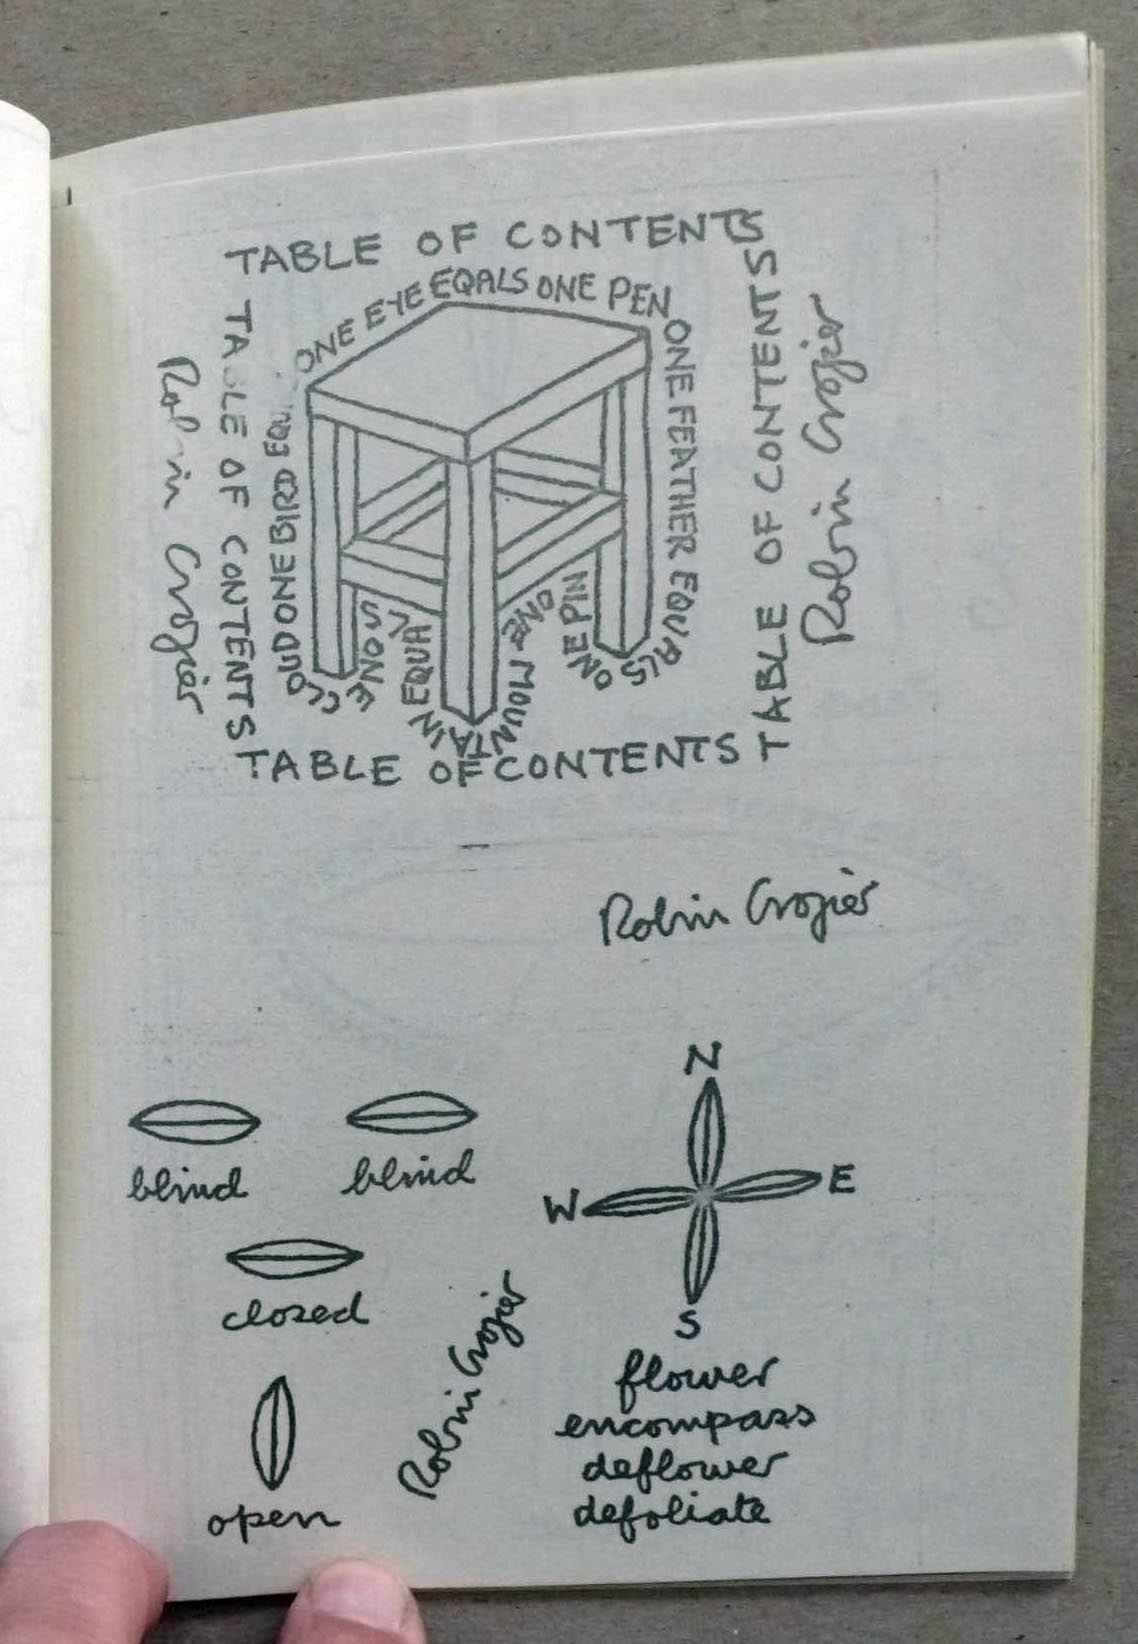 TABLE OF CONTENTS
TABLE OF CONTENTS
TABLE OF CONTENTS
TABLE OF CONTENTS
Robin Crozier
Robin Crozier
ONE EYE EQALS ONE PEN
ONE FEATHER EQUALS
ONE PIN
ONE MOUNTAIN EQUALS ONE
CLOUD ONE BIRD
Robin Crozier
blind
blind
closed
open
Robin Crozier
N
W E
S
flower
encompass
deflower
defoliate